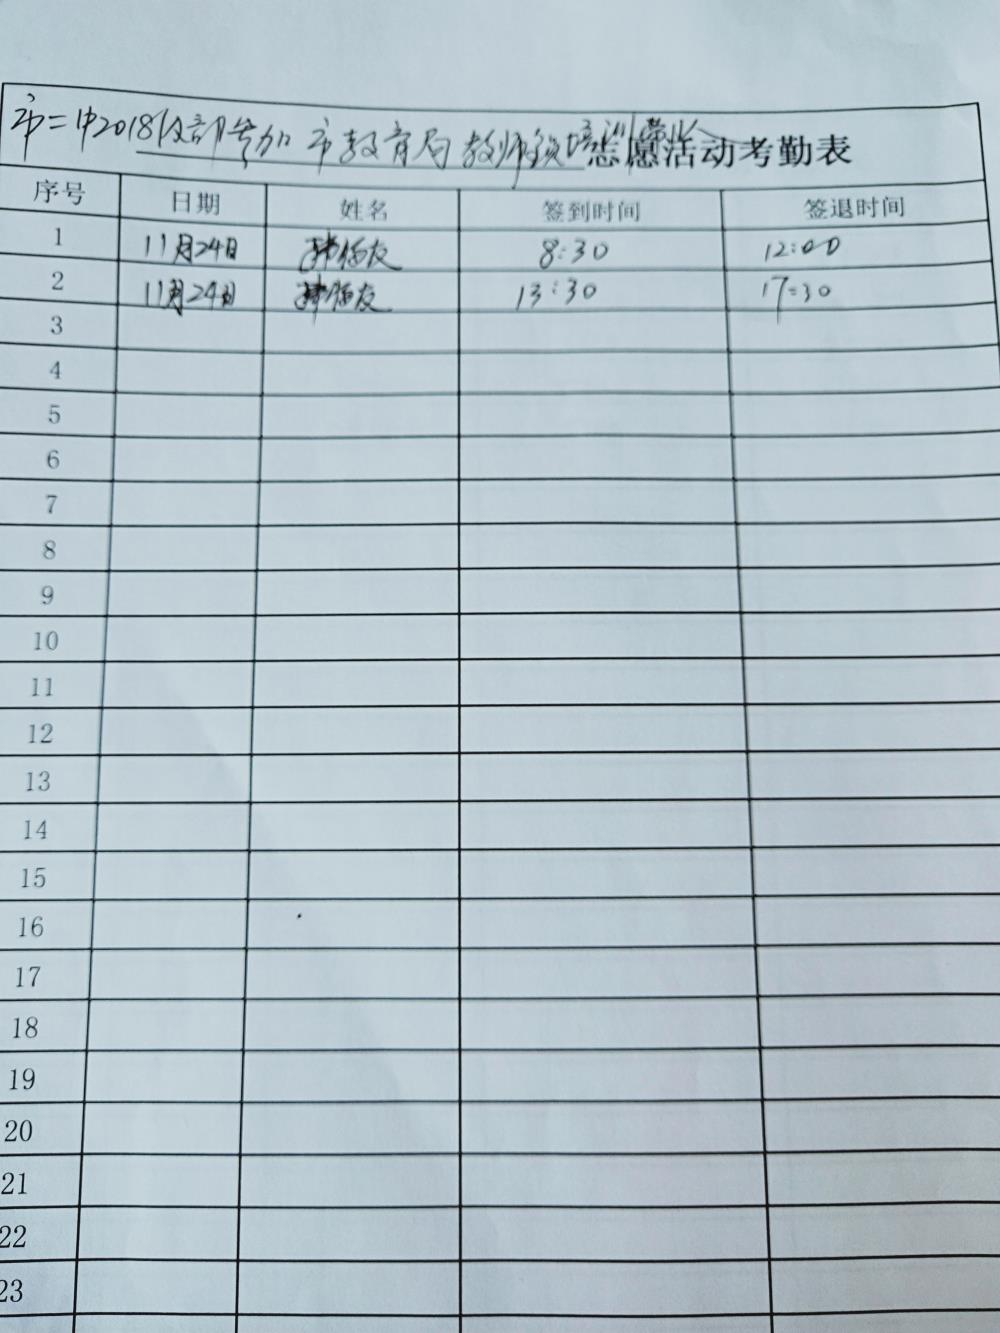 市二中2018级部参加市教育局教师培训 志愿活动考勤表
序号 日期 姓名 签到时间 签退时间
1 11月24日 友 8:30 12:00
2 11月24日 友 13:30 17:30
3
4
5
6
7
8
9
10
11
12
13
14
15
16
17
18
19
20
21
22
23